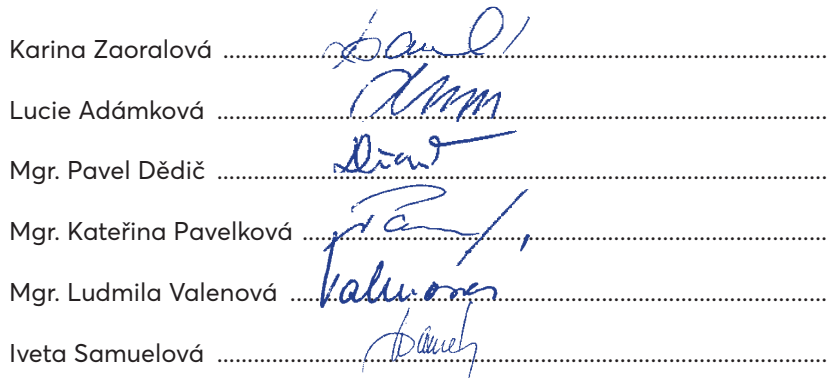 Karina Zaoralová ................................................
Lucie Adámková ................................................
Mgr. Pavel Dědič ................................................
Mgr. Kateřina Pavelková ................................................
Mgr. Ludmila Valenová ................................................
Iveta Samuelová ................................................